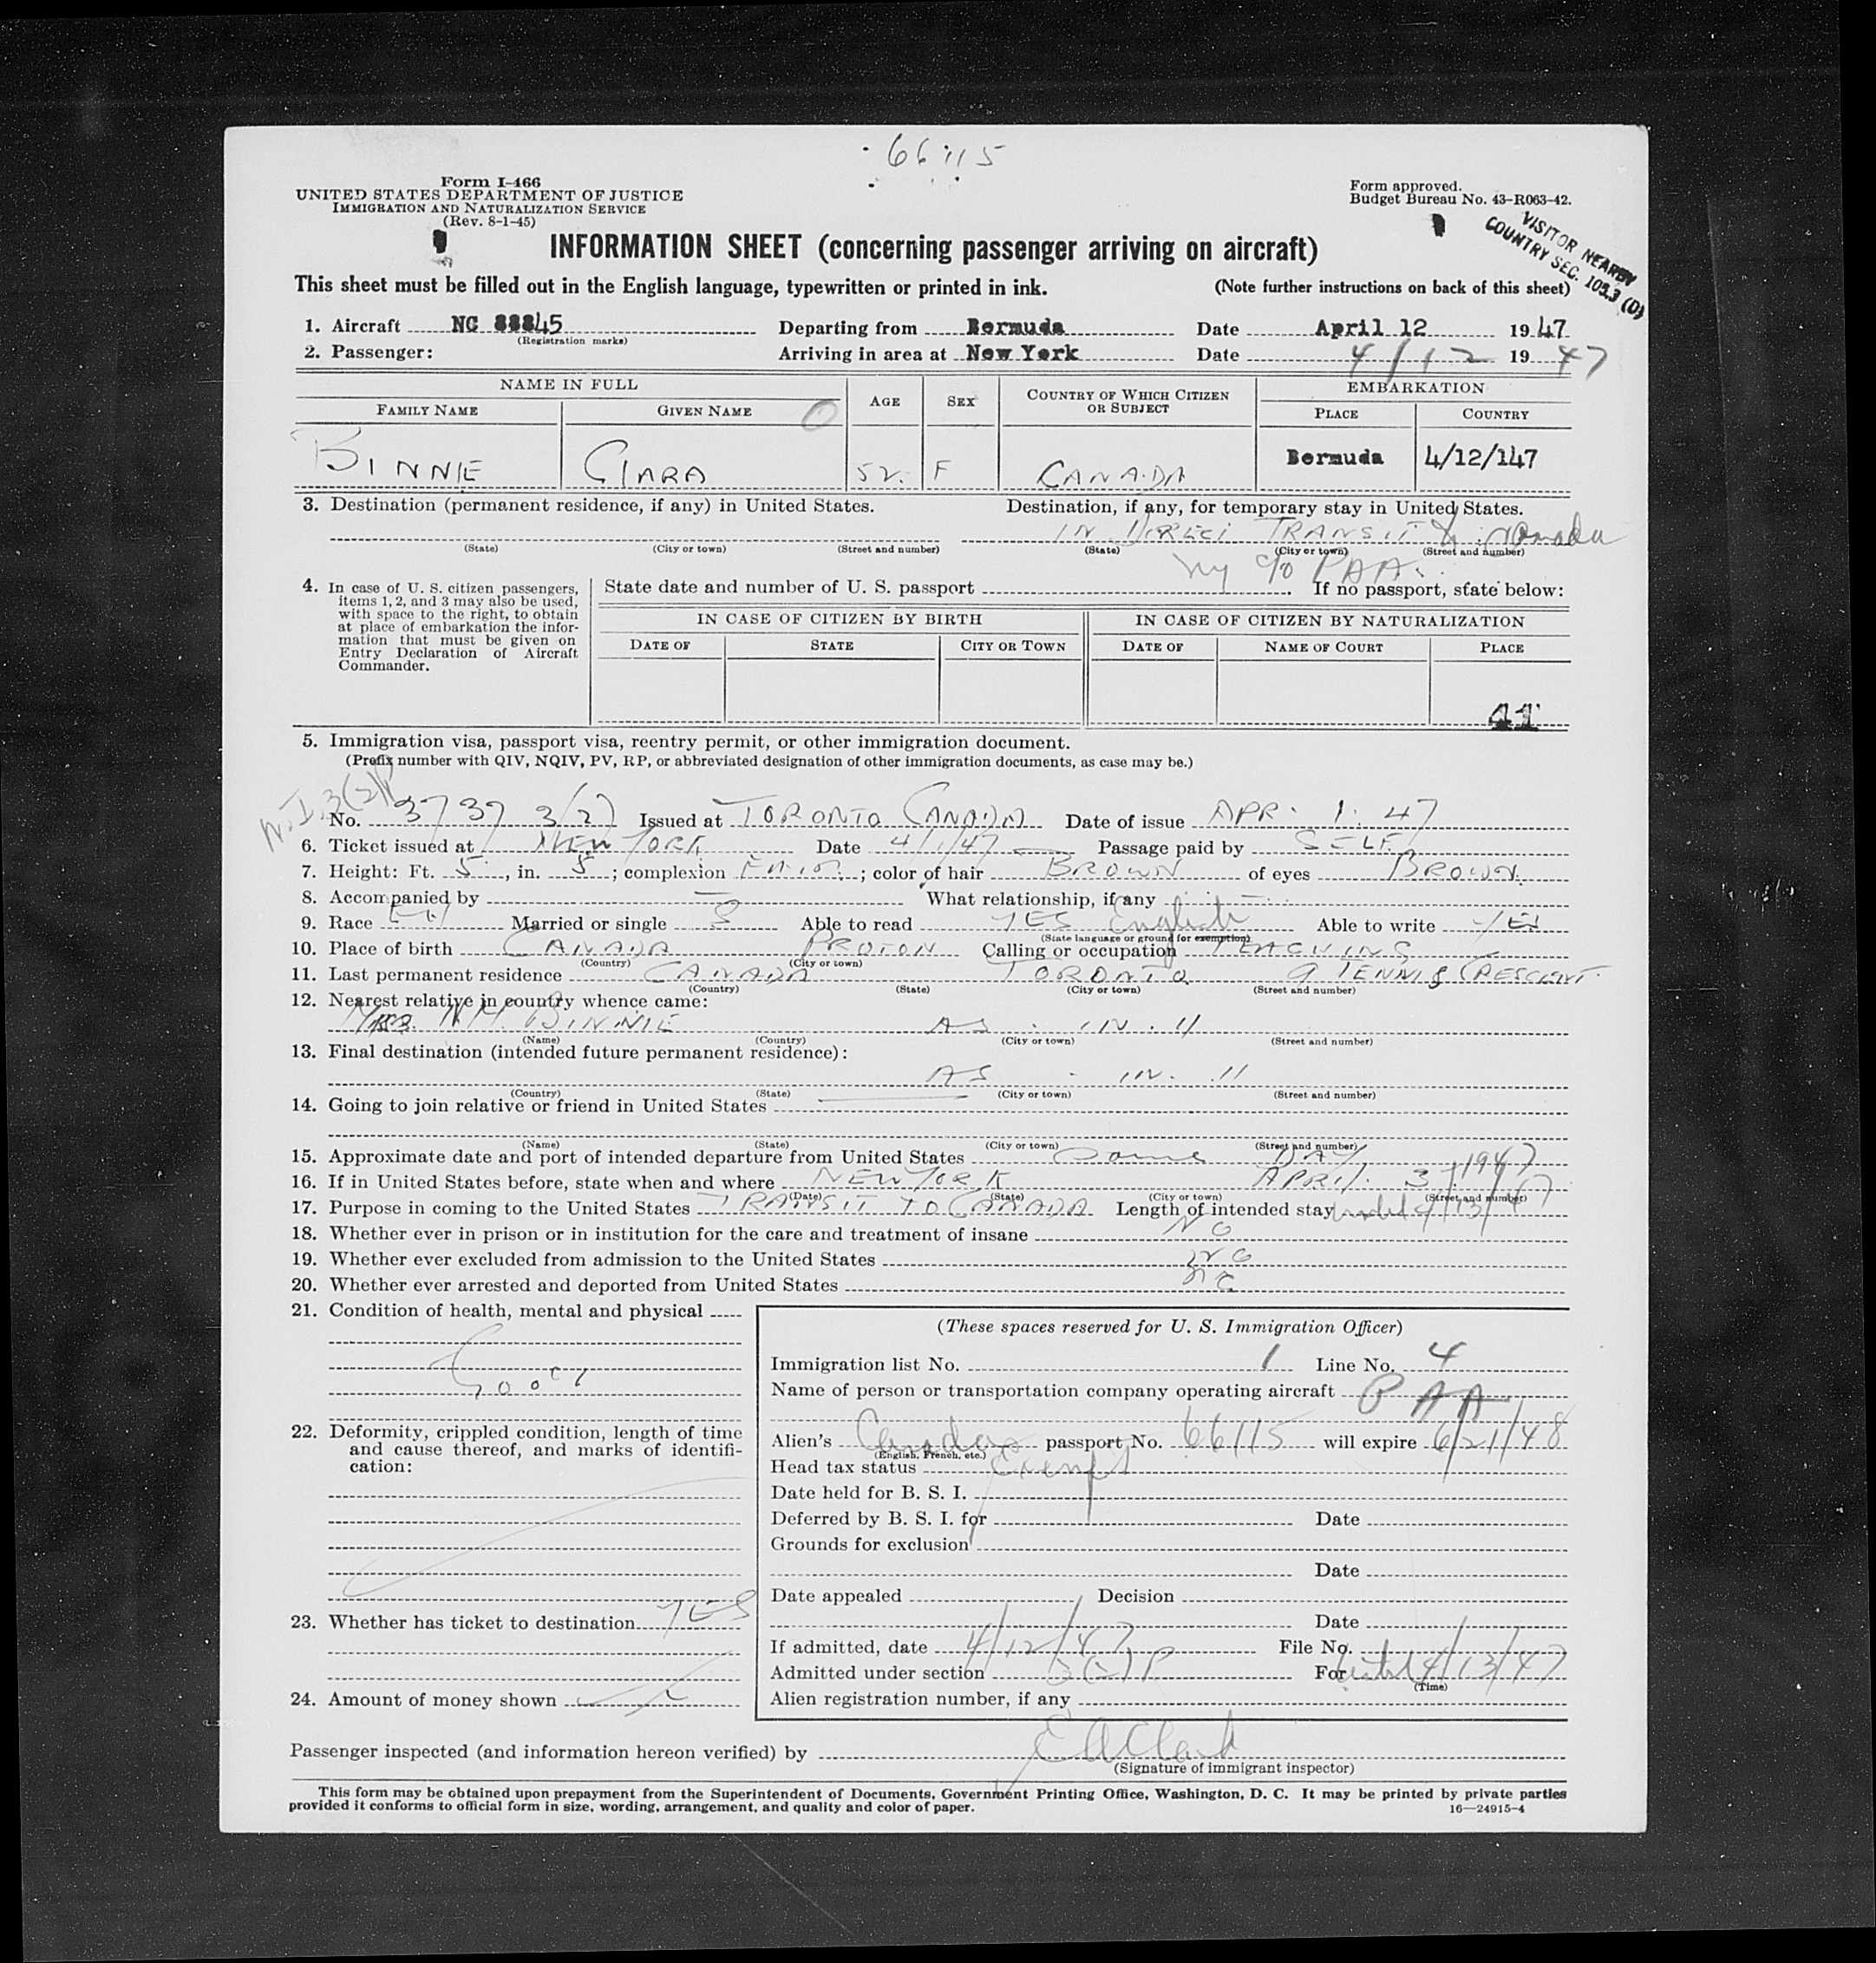 66115
Form I-466
UNITED STATES DEPARTMENT OF JUSTICE
IMMIGRATION AND NATURALIZATION SERVICE
(Rev. 8-1-45)
Form approved.
Budget Bureau No. 43-R063-42.
VISITOR NEARBY
COUNTRY SEC. 103.3 (D)
INFORMATION SHEET (concerning passenger arriving on aircraft)
This sheet must be filled out in the English language, typewritten or printed in ink. (Note further instructions on back of this sheet)
1. Aircraft NC 88845 Departing from Bermuda Date April 12 1947
(Registration marks)
2. Passenger: Arriving in area at New York Date 4/12 1947
NAME IN FULL AGE SEX COUNTRY OF WHICH CITIZEN OR SUBJECT EMBARKATION
FAMILY NAME GIVEN NAME PLACE COUNTRY
BINNIE CLARA 52 F CANADA Bermuda 4/12/147
3. Destination (permanent residence, if any) in United States. Destination, if any, for temporary stay in United States.
IN DIRECT TRANSIT to Canada
(State) (City or town) (Street and number) (State) (City or town) (Street and number)
ny c/o PAA
4. In case of U. S. citizen passengers, items 1, 2, and 3 may also be used, with space to the right, to obtain at place of embarkation the information that must be given on Entry Declaration of Aircraft Commander.
State date and number of U. S. passport . If no passport, state below:
IN CASE OF CITIZEN BY BIRTH IN CASE OF CITIZEN BY NATURALIZATION
DATE OF STATE CITY OR TOWN DATE OF NAME OF COURT PLACE
41
5. Immigration visa, passport visa, reentry permit, or other immigration document.
(Prefix number with QIV, NQIV, PV, RP, or abbreviated designation of other immigration documents, as case may be.)
N.I. 3(2)P
No. 3737 3(2) Issued at TORONTO CANADA Date of issue APR. 1. 47
6. Ticket issued at NEW YORK Date 4/1/47 Passage paid by SELF
7. Height: Ft. 5, in. 5; complexion FAIR; color of hair BROWN of eyes BROWN
8. Accompanied by — What relationship, if any —
9. Race Married or single S Able to read YES English Able to write YES
(State language or ground for exemption)
10. Place of birth CANADA PROTON Calling or occupation TEACHING
(Country) (City or town)
11. Last permanent residence CANADA TORONTO 9 TENNIS CRESCENT
(Country) (State) (City or town) (Street and number)
12. Nearest relative in country whence came:
MRS. N.M. BINNIE AS IN 11
(Name) (Country) (City or town) (Street and number)
13. Final destination (intended future permanent residence):
AS IN 11
(Country) (State) (City or town) (Street and number)
14. Going to join relative or friend in United States —
(Name) (State) (City or town) (Street and number)
15. Approximate date and port of intended departure from United States Same DAY
16. If in United States before, state when and where NEW YORK APRIL 3, 1947
(Date) (State) (City or town) (Street and number)
17. Purpose in coming to the United States TRANSIT TO CANADA Length of intended stay until 4/13/47
18. Whether ever in prison or in institution for the care and treatment of insane NO
19. Whether ever excluded from admission to the United States NO
20. Whether ever arrested and deported from United States NO
21. Condition of health, mental and physical
Good
22. Deformity, crippled condition, length of time and cause thereof, and marks of identification:
23. Whether has ticket to destination YES
24. Amount of money shown
(These spaces reserved for U. S. Immigration Officer)
Immigration list No. 1 Line No. 4
Name of person or transportation company operating aircraft PAA
Alien's Canadian passport No. 66115 will expire 6/21/48
(English, French, etc.)
Head tax status Exempt
Date held for B. S. I.
Deferred by B. S. I. for Date
Grounds for exclusion
Date
Date appealed Decision
Date
If admitted, date 4/12/47 File No.
Admitted under section 3(2)P For until 4/13/47
(Time)
Alien registration number, if any
Passenger inspected (and information hereon verified) by E A Clark
(Signature of immigrant inspector)
This form may be obtained upon prepayment from the Superintendent of Documents, Government Printing Office, Washington, D. C. It may be printed by private parties
provided it conforms to official form in size, wording, arrangement, and quality and color of paper. 16—24915-4